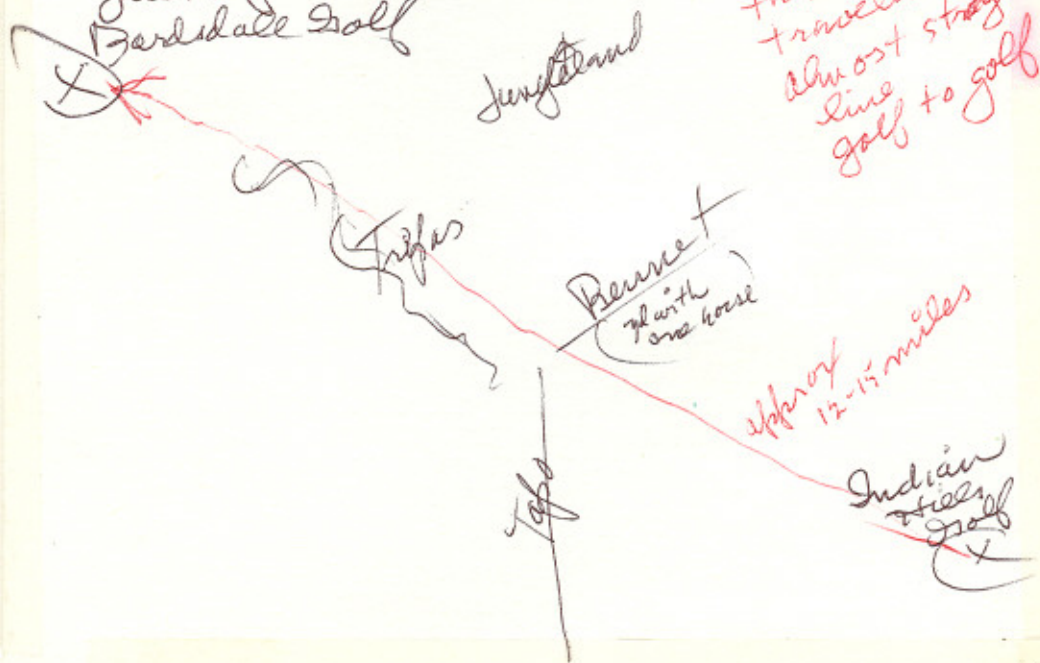 Bardsdale Golf
X
Jungleland
travel
almost straig
line
golf to golf
Trifas
Bennet
with
one horse
approx
12-15 miles
Topo
Indian
Hills
Golf
X